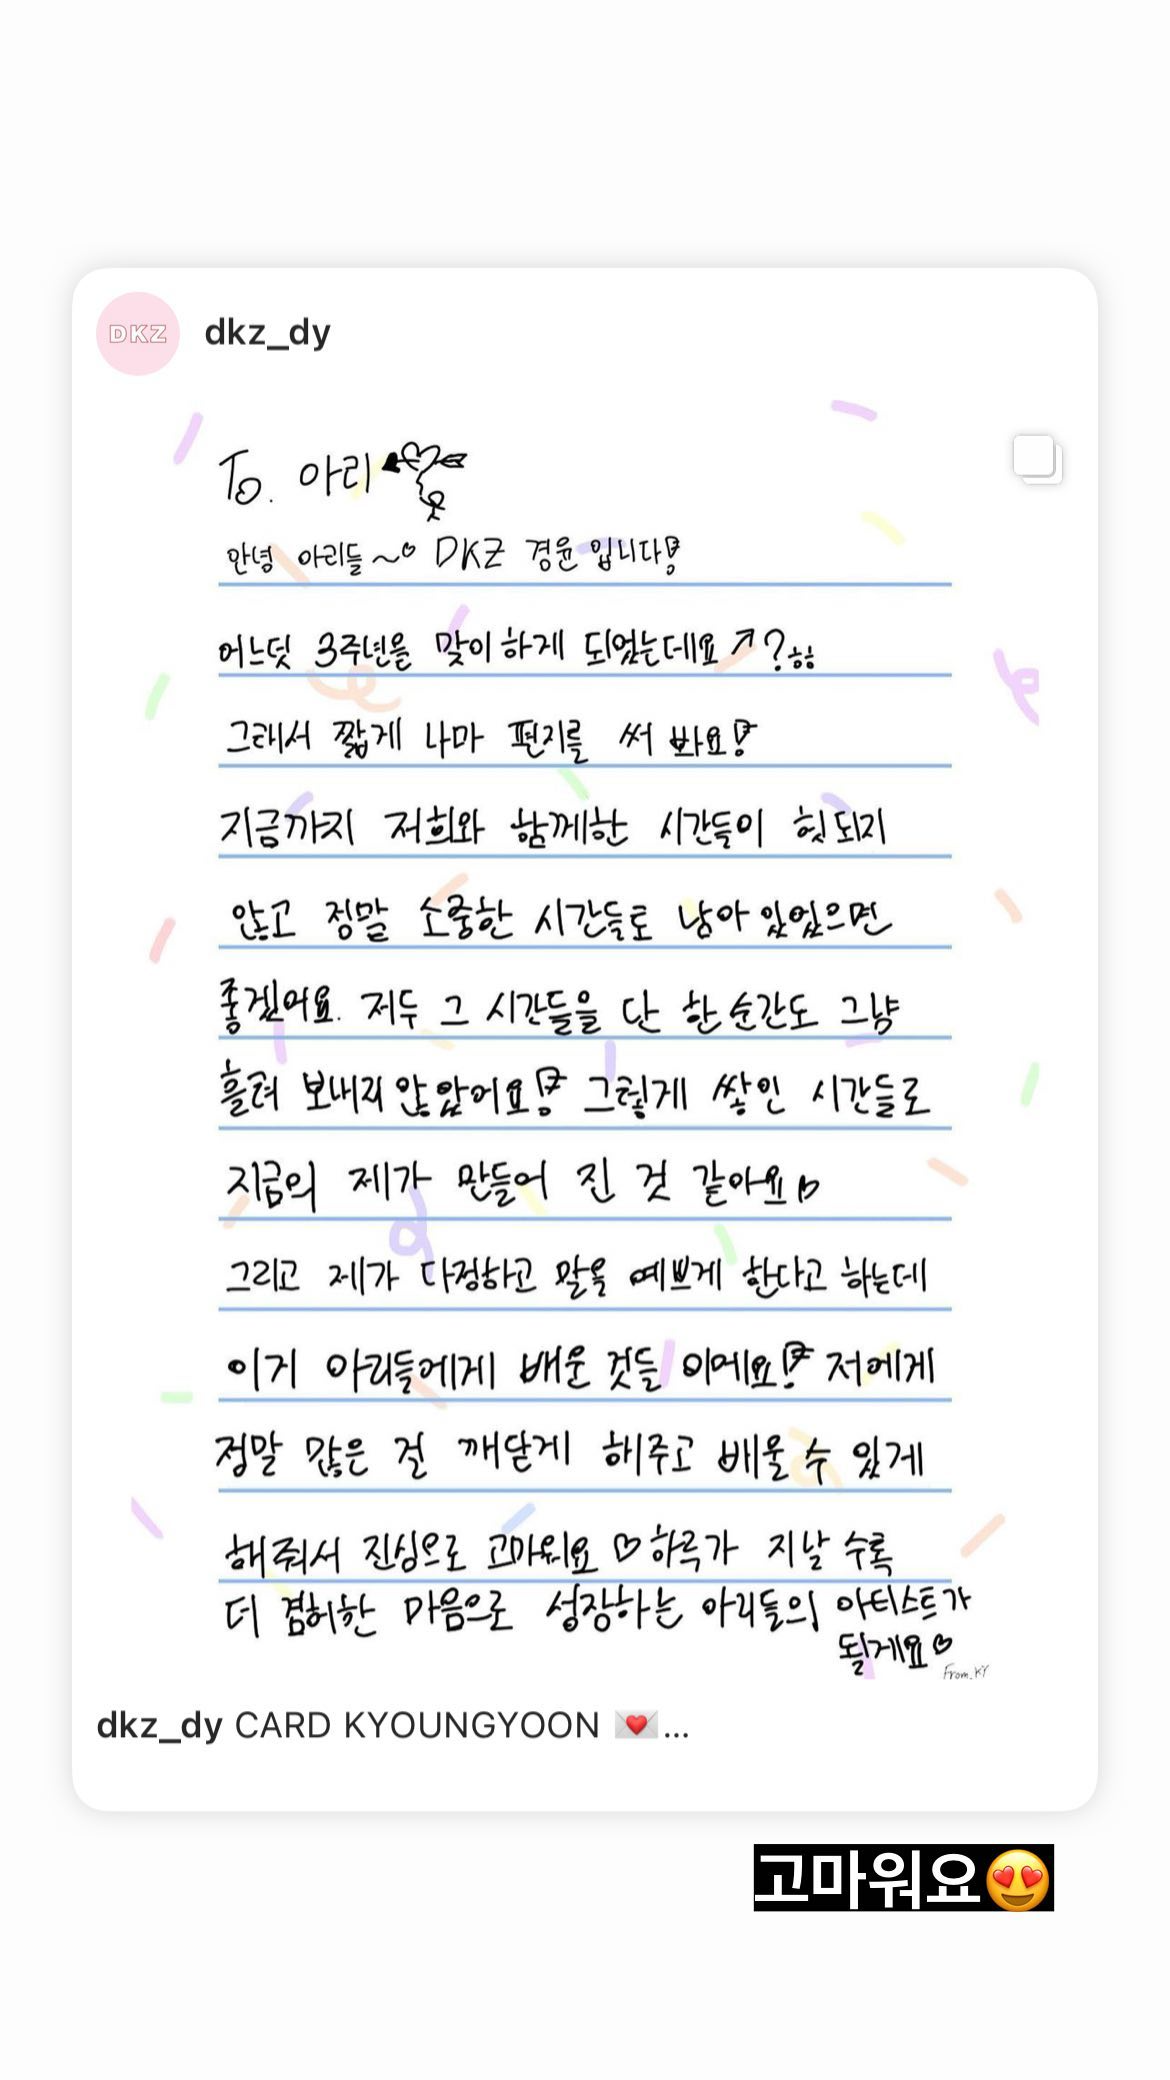 DKZ
dkz_dy
To. 아리
안녕 아리들~♡ DKZ 경윤입니다!
어느덧 3주년을 맞이하게 되었는데요↗?ㅎㅎ
그래서 짧게 나마 편지를 써 봐요!
지금까지 저희와 함께한 시간들이 헛되지
않고 정말 소중한 시간들로 남아있었으면
좋겠어요. 저두 그 시간들을 단 한순간도 그냥
흘려 보내지 않았어요! 그렇게 쌓인 시간들로
지금의 제가 만들어 진 것 같아요♡
그리고 제가 다정하고 말을 예쁘게 한다고 하는데
이거 아리들에게 배운 것들 이에요! 저에게
정말 많은 걸 깨닫게 해주고 배울 수 있게
해줘서 진심으로 고마워요♡하루가 지날 수록
더 겸허한 마음으로 성장하는 아리들의 아티스트가
될게요♡
From.KY
dkz_dy CARD KYOUNGYOON 💌...
고마워요😍